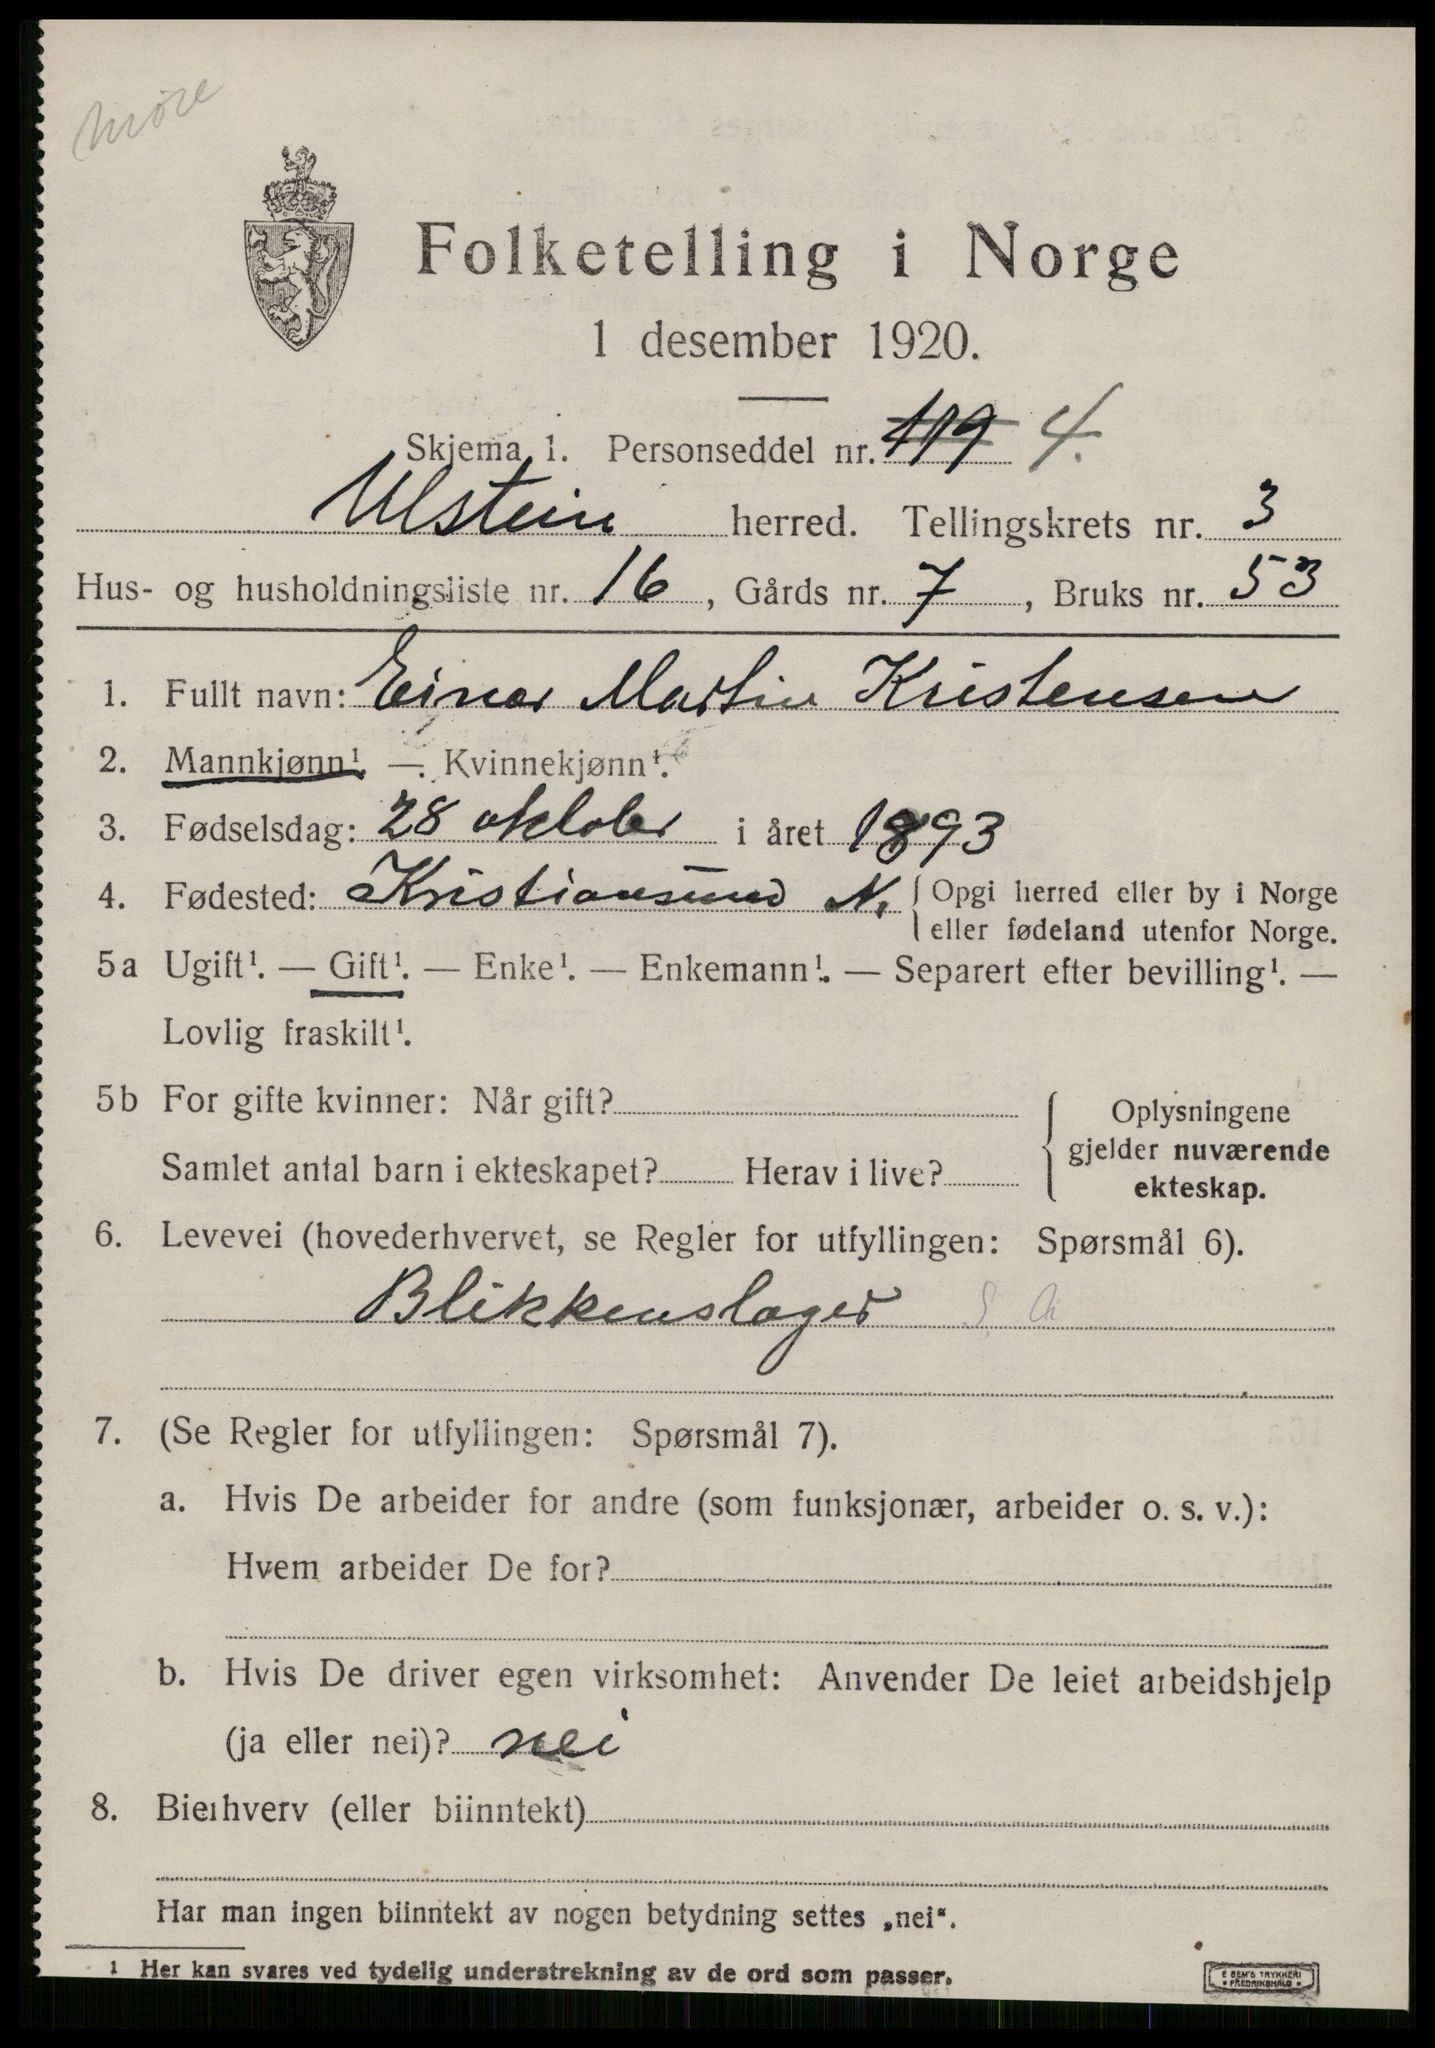 Møre
Folketelling i Norge
1 desember 1920.
Skjema 1. Personseddel nr. 119 4.
Ulstein herred. Tellingskrets nr. 3
Hus- og husholdningsliste nr. 16, Gårds nr. 7, Bruks nr. 53
1. Fullt navn: Einar Martin Kristensen
2. Mannkjønn¹. — Kvinnekjønn¹.
3. Fødselsdag: 28 oktober i året 1893
4. Fødested: Kristiansund N. { Opgi herred eller by i Norge
eller fødeland utenfor Norge.
5a Ugift¹. — Gift¹. — Enke¹. — Enkemann¹. — Separert efter bevilling¹. —
Lovlig fraskilt¹.
5b For gifte kvinner: Når gift?
Samlet antal barn i ekteskapet? Herav i live?
Oplysningene
gjelder nuværende
ekteskap.
6. Levevei (hovederhvervet, se Regler for utfyllingen: Spørsmål 6).
Blikkenslager
7. (Se Regler for utfyllingen: Spørsmål 7).
a. Hvis De arbeider for andre (som funksjonær, arbeider o. s. v.):
Hvem arbeider De for?
b. Hvis De driver egen virksomhet: Anvender De leiet arbeidshjelp
(ja eller nei)? nei
8. Bierhverv (eller biinntekt)
Har man ingen biinntekt av nogen betydning settes „nei“.
1 Her kan svares ved tydelig understrekning av de ord som passer.
E SEM'S TRYKKERI
FREDRIKSHALD